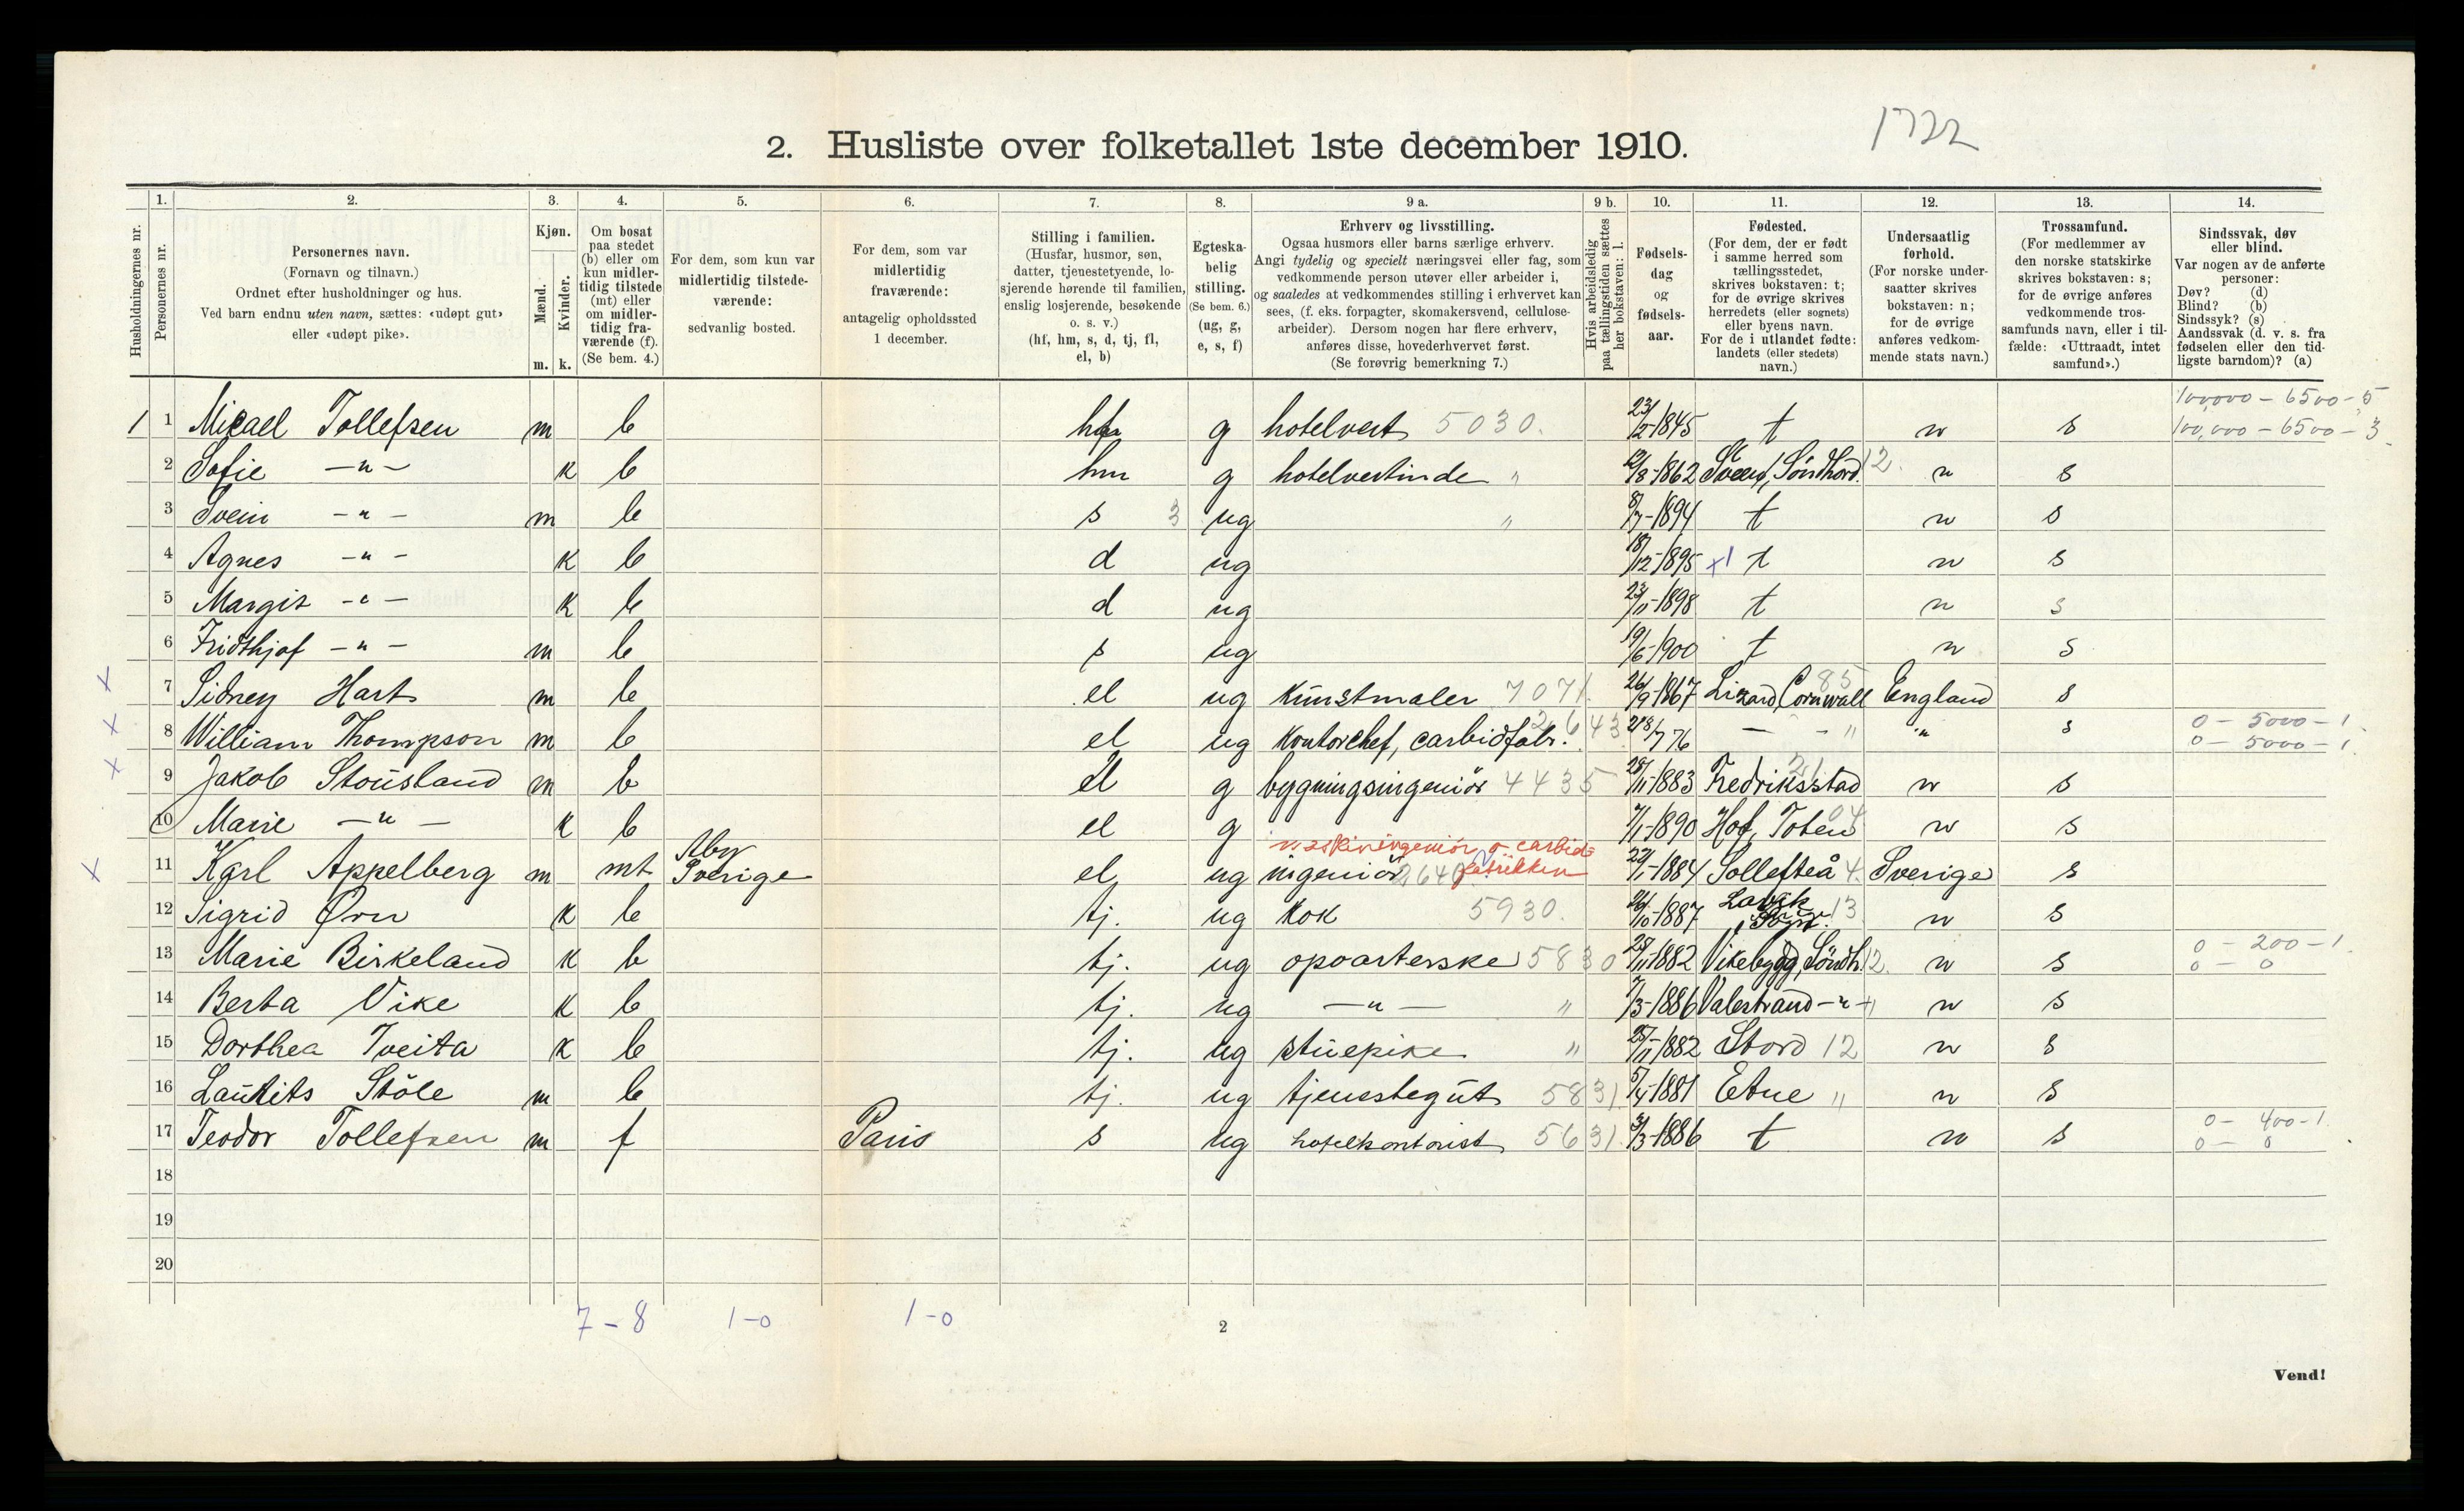 1722
2. Husliste over folketallet 1ste december 1910.
Husholdningernes nr.
1.
Personernes nr.
2.
Personernes navn.
(Fornavn og tilnavn.)
Ordnet efter husholdninger og hus.
Ved barn endnu uten navn, sættes: «udøpt gut»
eller «udøpt pike».
3.
Kjøn.
Mænd.
Kvinder.
m. k.
4.
Om bosat
paa stedet
(b) eller om
kun midler-
tidig tilstede
(mt) eller
om midler-
tidig fra-
værende (f).
(Se bem. 4.)
5.
For dem, som kun var
midlertidig tilstede-
værende:
sedvanlig bosted.
6.
For dem, som var
midlertidig
fraværende:
antagelig opholdssted
1 december.
7.
Stilling i familien.
(Husfar, husmor, søn,
datter, tjenestetyende, lo-
sjerende hørende til familien,
enslig losjerende, besøkende
o. s. v.)
(hf, hm, s, d, tj, fl,
el, b)
8.
Egteska-
belig
stilling.
(Se bem. 6.)
(ug, g,
e, s, f)
9 a.
Erhverv og livsstilling.
Ogsaa husmors eller barns særlige erhverv.
Angi tydelig og specielt næringsvei eller fag, som
vedkommende person utøver eller arbeider i,
og saaledes at vedkommendes stilling i erhvervet kan
sees, (f. eks. forpagter, skomakersvend, cellulose-
arbeider). Dersom nogen har flere erhverv,
anføres disse, hovederhvervet først.
(Se forøvrig bemerkning 7.)
9 b.
Hvis arbeidsledig
paa tællingstiden sættes
her bokstaven: l.
10.
Fødsels-
dag
og
fødsels-
aar.
11.
Fødested.
(For dem, der er født
i samme herred som
tællingsstedet,
skrives bokstaven: t;
for de øvrige skrives
herredets (eller sognets)
eller byens navn.
For de i utlandet fødte:
landets (eller stedets)
navn.)
12.
Undersaatlig
forhold.
(For norske under-
saatter skrives
bokstaven: n;
for de øvrige
anføres vedkom-
mende stats navn.)
13.
Trossamfund.
(For medlemmer av
den norske statskirke
skrives bokstaven: s;
for de øvrige anføres
vedkommende tros-
samfunds navn, eller i til-
fælde: «Uttraadt, intet
samfund».)
14.
Sindssvak, døv
eller blind.
Var nogen av de anførte
personer:
Døv? (d)
Blind? (b)
Sindssyk? (s)
Aandssvak (d. v. s. fra
fødselen eller den tid-
ligste barndom)? (a)
1 1 Micael Tollefsen m b hf g hotelvert 5030. 23/2-1845 t n s 100,000 - 6500 - 5
100,000 - 6500 - 3
2 Sofie -"- k b hm g hotelvertinde " 12/8-1862 Sveen, Söndhord. 12. n s
3 Svein -"- m b s 3 ug " 8/7-1894 t n s
4 Agnes -"- k b d ug 18/12-1895 x1 t n s
5 Margit -"- k b d ug 23/11-1898 t n s
6 Fridthjof -"- m b s ug 19/6-1900 t n s
x 7 Sidney Hart m b el ug Kunstmaler 7071. 26/9-1867 Lizard, Cornwall 85 England s
x 8 William Thompson m b el ug Kontorchef, carbidfabr. 2643 21/7 76 - - " " s 0 - 5000 - 1
0 - 5000 - 1.
x 9 Jakob Stousland m b el g bygningsingeniör 4435 28/11-1883 Fredriksstad 21 n s
10 Marie -"- k b el g 7/1-1890 Hof, Toten 04 n s
x 11 Karl Appelberg m mt Aby Sverige el ug ingeniör 2640 maskiningeniör v carbid-
fabrikken 27/1-1884 Sollefteå 4. Sverige s
12 Sigrid Ørn k b tj. ug Kok 5930. 26/10-1887 Lavik Sogn. 13 n s
13 Marie Birkeland k b tj. ug opvarterske 5830 25/11-1882 Vikebygd, Söndh. 12. n s 0 - 200 - 1.
0 - 0
14 Berta Vike k b tj. ug -"- " 7/3-1886 Valestrand -"- " n s
15 Dorthea Tveita k b tj. ug stuepike " 25/11-1882 Stord 12 n s
16 Laurits Stöle m b tj. ug tjenestegut 5831. 5/4-1881 Etne " n s
17 Teodor Tollefsen m f Paris s ug hotelkontorist 5631. 3/3-1886 t n s 0 - 400 - 1.
0 - 0
18
19
20
7 - 8 1 - 0 1 - 0
2
Vend!